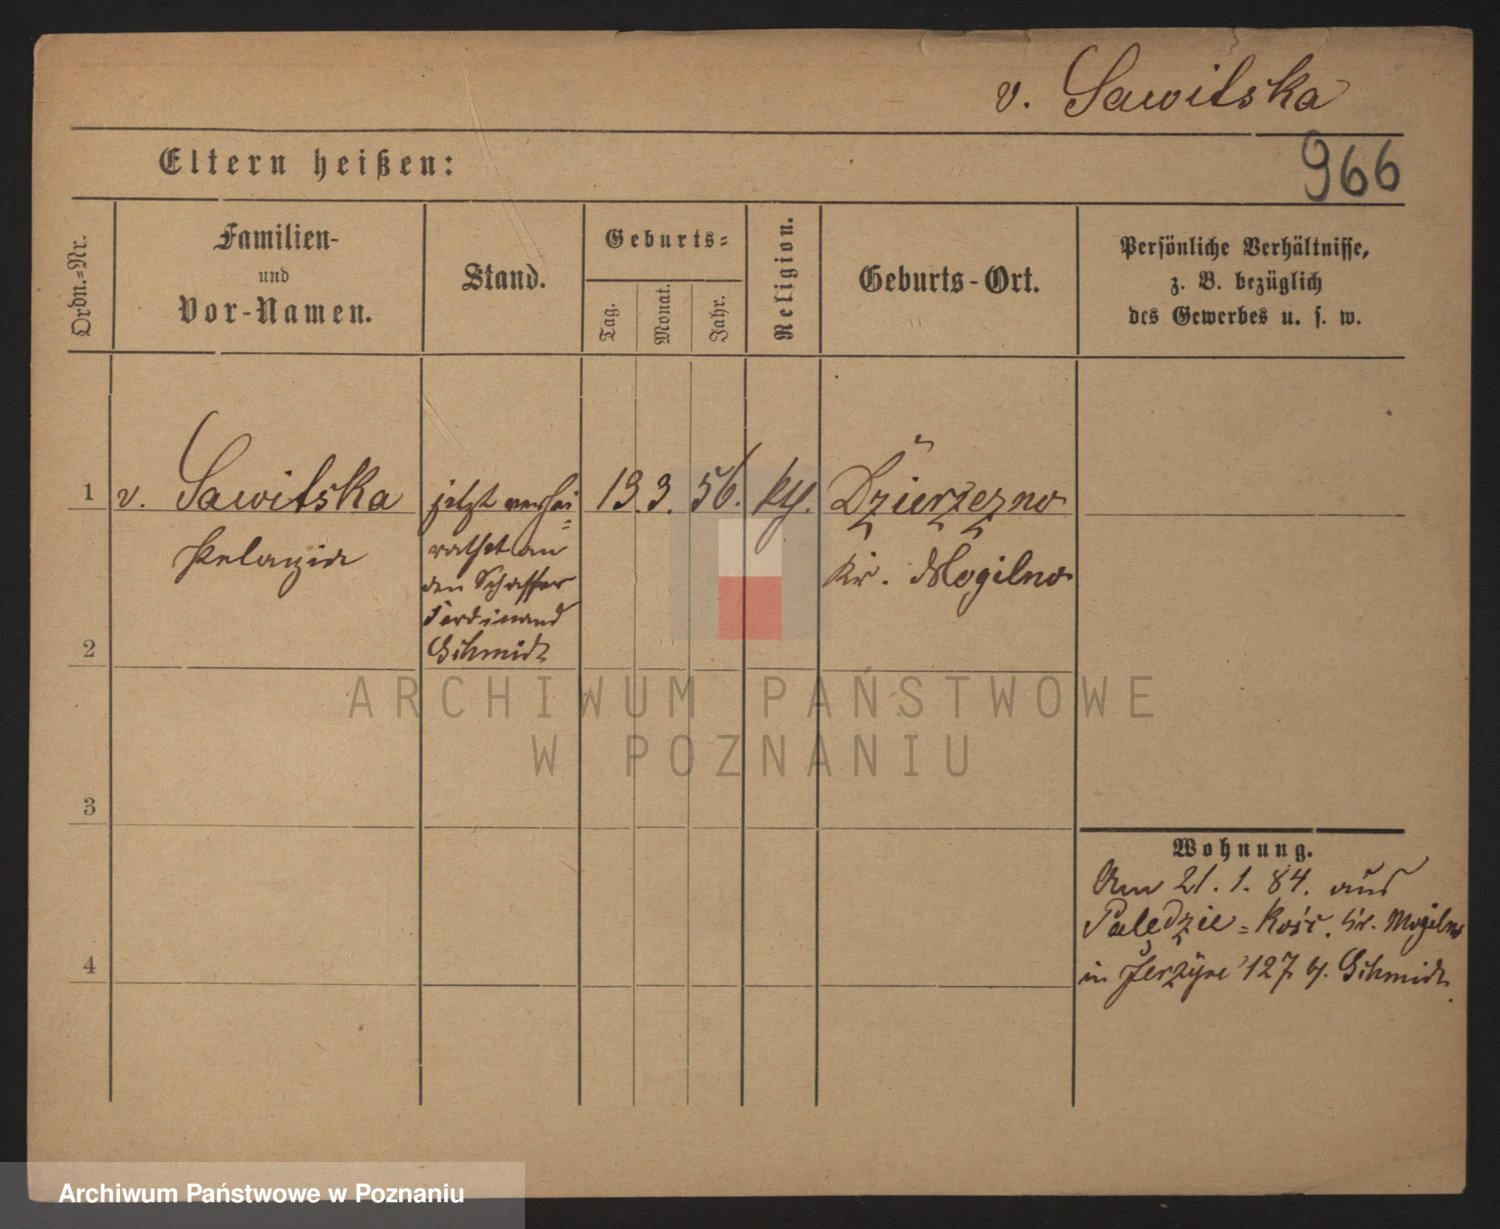 v. Sawitska
Eltern heißen:
966
Ordn.=Nr.
Familien-
und
Vor-Namen.
Stand.
Geburts=
Tag.
Monat.
Jahr.
Religion.
Geburts-Ort.
Persönliche Verhältnisse,
z. B. bezüglich
des Gewerbes u. s. w.
1 v. Sawitska jetzt verhei= 13. 3. 56. kth. Dzierzezno
Pelagia rathet an Kr. Mogilno
den Schaffer
Ferdinand
2 Schmidt
ARCHIWUM PAŃSTWOWE
W POZNANIU
3
Wohnung.
Am 21. 1. 84. aus
Paledzie=Kość. Kr. Mogilno
4 in Jerzyce 127 b. Schmidt.
Archiwum Państwowe w Poznaniu